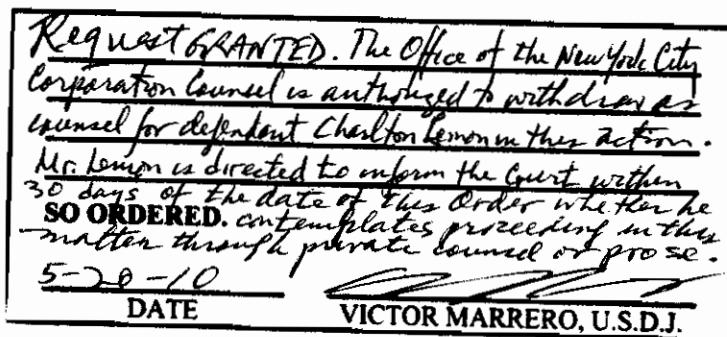 Request GRANTED. The Office of the New York City
Corporation Counsel is authorized to withdraw as
counsel for defendant Charlton Lemon in this action.
Mr. Lemon is directed to inform the Court within
30 days of the date of this Order whether he
SO ORDERED. contemplates proceeding in this
matter through private counsel or pro se.
5-20-10
DATE VICTOR MARRERO, U.S.D.J.